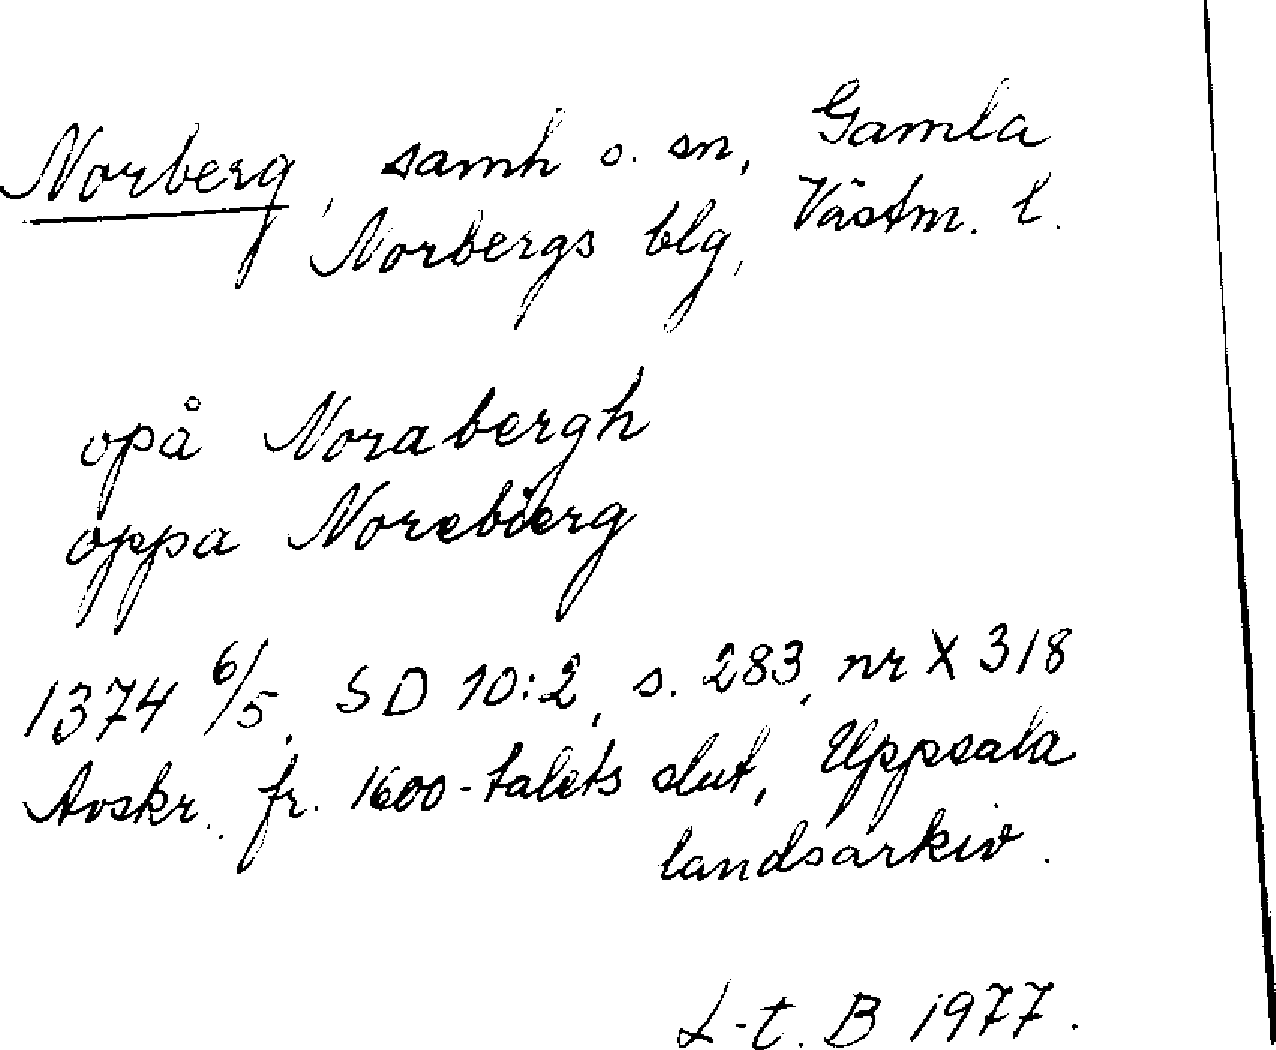 Norberg, samh o. sn, Gamla
Norbergs blg, Västm. l.
opå Norabergh
oppa Norebärg
1374 6/5, SD 10:2, s. 283, nr X 318
Avskr. fr. 1600-talets slut, Uppsala
landsarkiv.
L-t. B 1977.